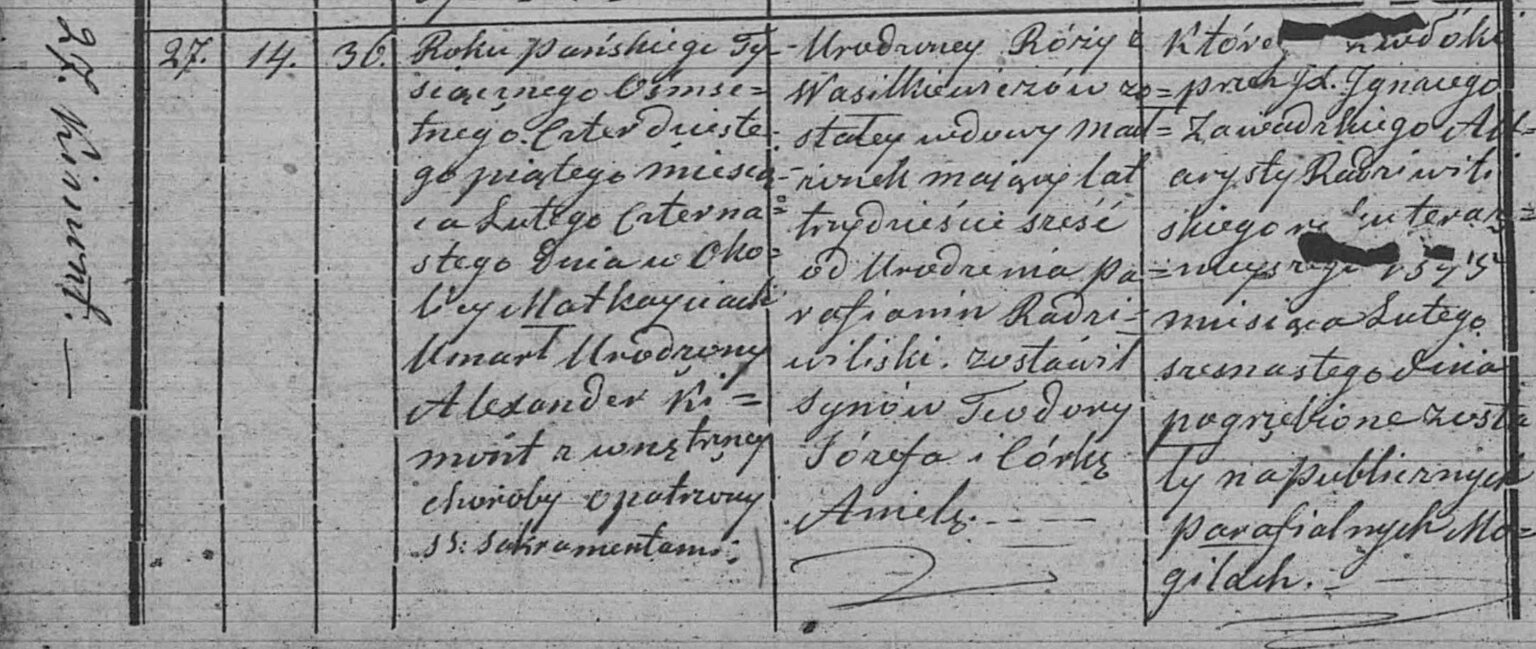 27. Kimunt. —
27.
14.
36.
Roku Pańskiego Ty-
siącznego Ośmse=
tnego Czterdzieste-
go piątego miesią-
ca Lutego Czterna=
stego dnia w Oko=
licy
Umarł Urodzony
Alexander Ki=
mint z wnętrzney
choroby opatrzony
SS: Sakramentami;
-Urodzoney Róży z
Wasilkiewiczów zo=
staley wdowy mał=
zonek maiący lat
trzydzieście sześć
od Urodzenia Pa=
rafianin Radzi-
wiliski. zostawił
synów Teodory
Józefa i Córkę
Anielę. - - —
Które zwłoki
przeh Jx. Ignacego
Zawadzkiego Alt=
arysty Radziwili
skiego teraz=
nieyszego 1845
miesiąca Lutego
szesnastego dnia
pogrzebione zosta
ły na publicznych
parafialnych Mo=
gilach. -